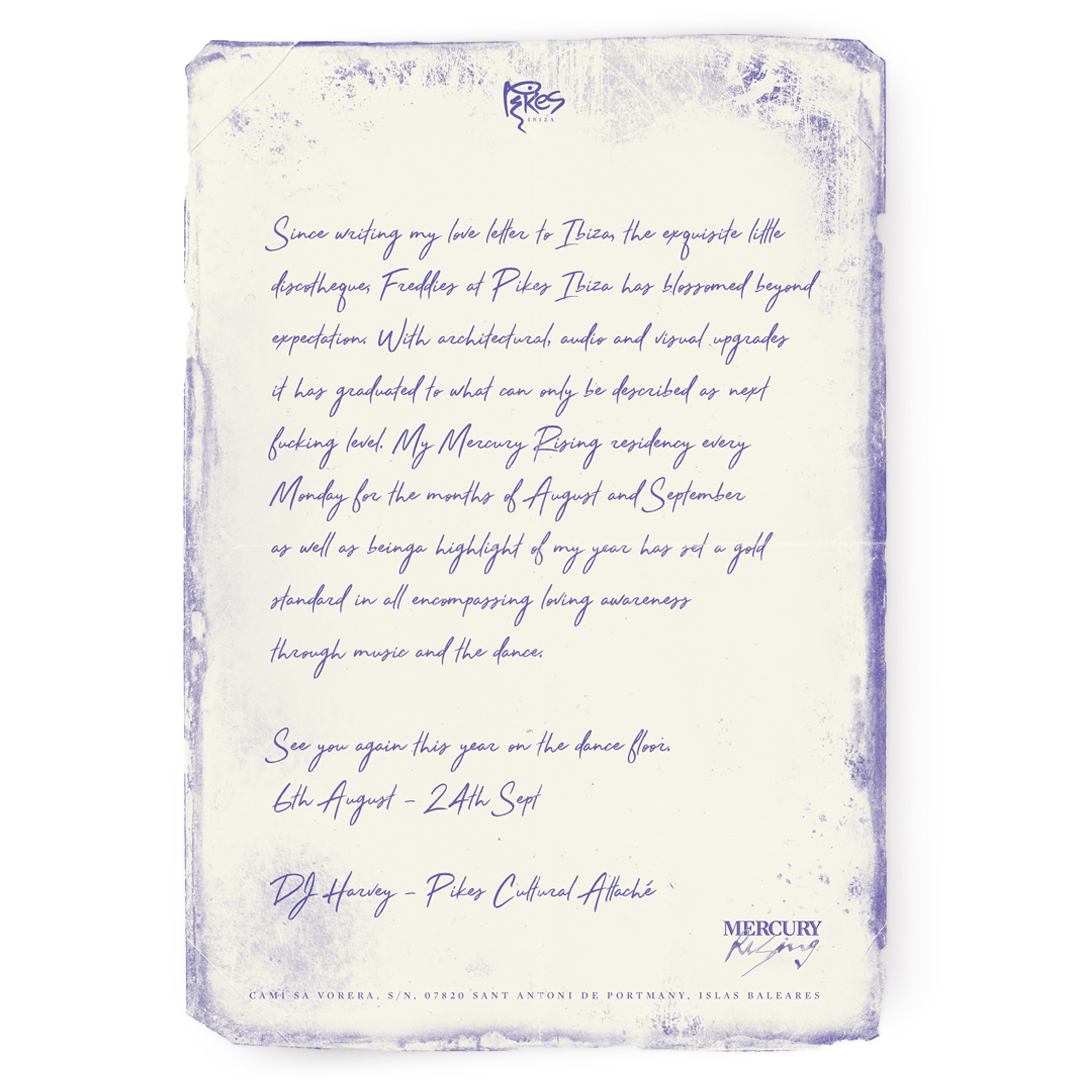 Pikes
IBIZA
Since writing my love letter to Ibiza, the exquisite little
discotheque, Freddies at Pikes Ibiza has blossomed beyond
expectation. With architectural, audio and visual upgrades
it has graduated to what can only be described as next
fucking level. My Mercury Rising residency every
Monday for the months of August and September
as well as beinga highlight of my year has set a gold
standard in all encompassing loving awareness
through music and the dance.
See you again this year on the dance floor.
6th August – 24th Sept
DJ Harvey – Pikes Cultural Attaché
MERCURY
Rising
CAMÍ SA VORERA, S/N, 07820 SANT ANTONI DE PORTMANY, ISLAS BALEARES